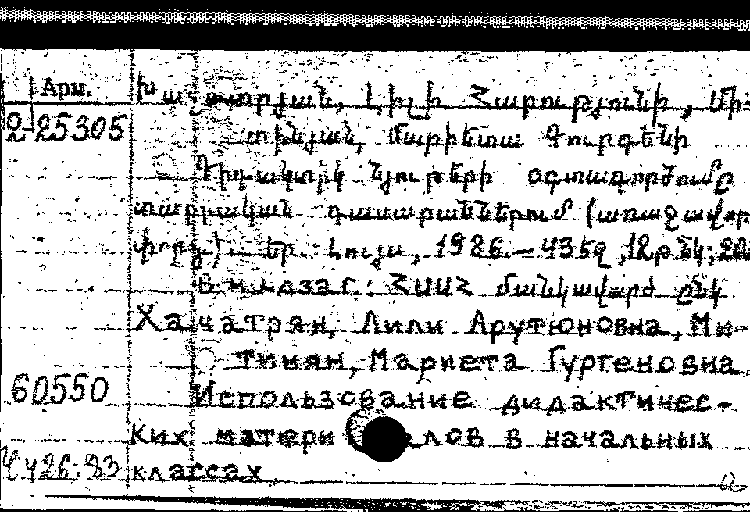 Арм.
Խաչատրյան, Լիլի Հարությունի, Մի-
2-25305
տինյան, Մարիետա Գուրգենի
Դիդակտիկ նյութերի օգտագործումը
տարրական դասարաններում (առաջավոր
փորձ).— Եր. Լույս, 1986.— 435զ, 12թ
ՀՍՍՀ մանկավարժ ընկ
Хачатрян, Лили Арутюновна, Ми-
тинян, Мариета Гургеновна
60550
Использование дидактичес-
ких материалов в начальных
классах